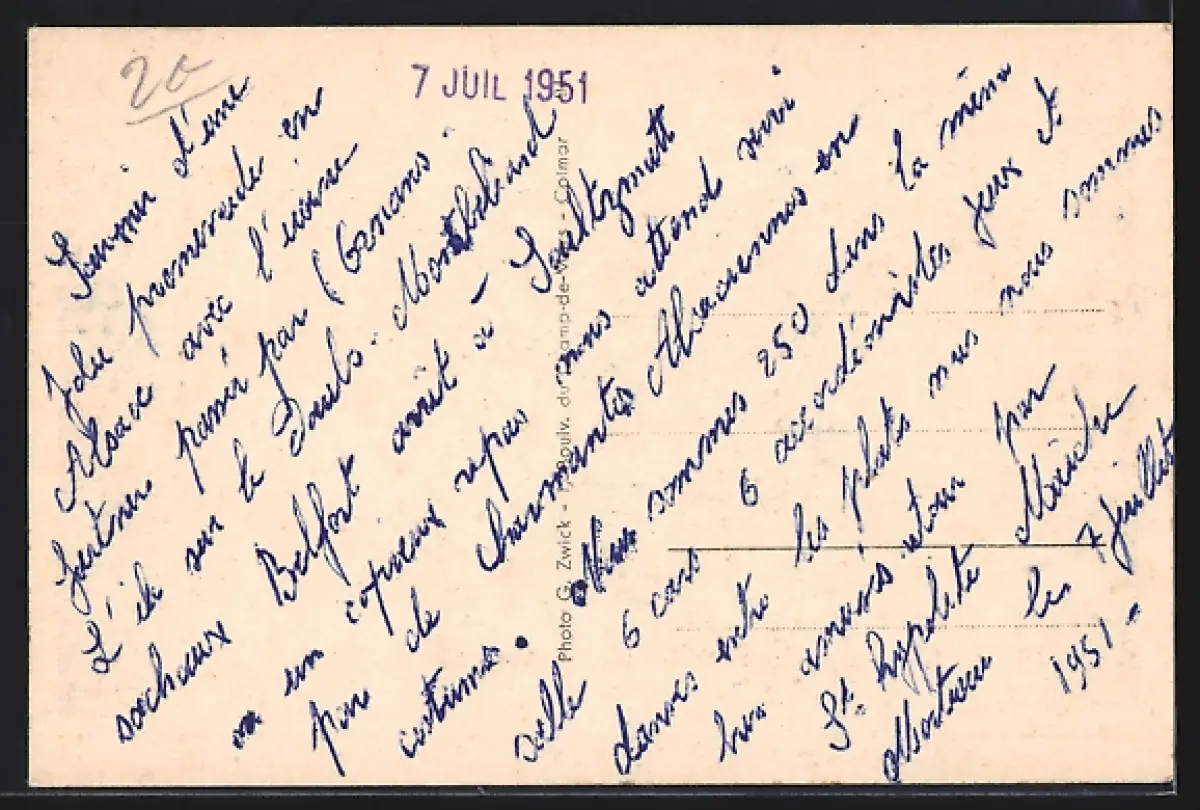 20
7 JUIL 1951
Souvenir d'une
Jolie promenade en
Alsace avec l'usine
passé par (Ornans
L'ile sur le Doubs. Montbéliard
sochaux Belfort arrêt a - Soultzmatt
ou un copieux repas nous attend
de charmantes Alsaciennes en
costumes. Nous sommes 250 dans la même
salle 6 cars 6 accordéonistes jeux et
danses entre les plats nous nous sommes
bien amusés retour par
St. Hypolite Maiche
Morteau le 7 Juillet
1951 -
Photo G. Zwick - Boulv. du Champ-de-Mars - Colmar